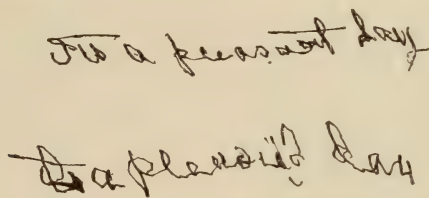 Tis a pleasant day
Tis a pleasant day